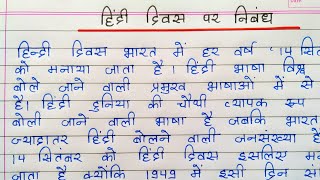 हिंदी दिवस पर निबंध
हिन्दी दिवस भारत में हर वर्ष '14 सित
को मनाया जाता है। हिंदी भाषा विश्व
बोले जाने वाली प्रमुख भाषाओं में से
है। हिंदी दुनिया की चौथी व्यापक रूप
बोली जाने वाली भाषा है जबकि भारत
ज्यादातर हिंदी बोलने वाली जनसंख्या है
14 सितंबर को हिंदी दिवस इसलिए म
जाता है क्योंकि 1949 में इसी दिन सं